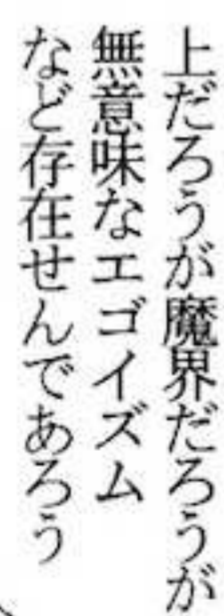 上だろうが魔界だろうが
無意味なエゴイズム
など存在せんであろう